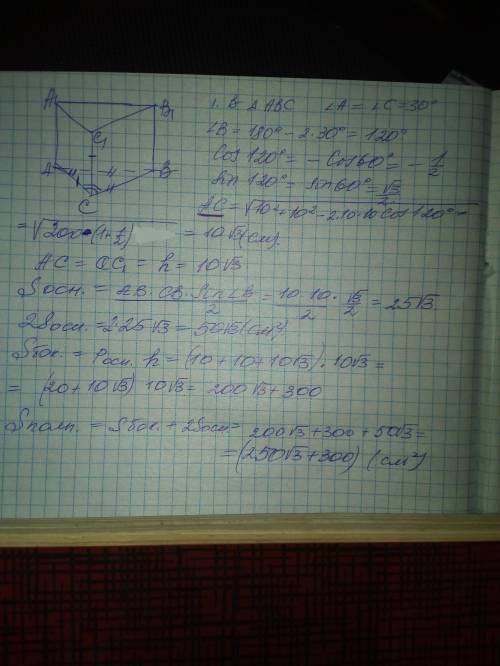 A₁
B₁
C₁
A
B
C
1. В △ABC ∠A = ∠C = 30°
∠B = 180° - 2·30° = 120°
Cos 120° = - Cos 60° = - 1/2
Sin 120° = Sin 60° = √3/2
AC = √10² + 10² - 2·10·10 cos 120° =
= √200·(1+1/2) = 10√3 (см).
AC = CC₁ = h = 10√3
Sосн. = AB·CB·Sin∠B/2 = 10·10/2 · √3/2 = 25√3
2Sосн. = 2·25√3 = 50√3 (см²)
Sбок. = Pосн. h = (10 + 10 + 10√3)·10√3 =
= (20 + 10√3) 10√3 = 200√3 + 300
Sполн. = Sбок. + 2Sосн = 200√3 + 300 + 50√3 =
= (250√3 + 300) (см²)